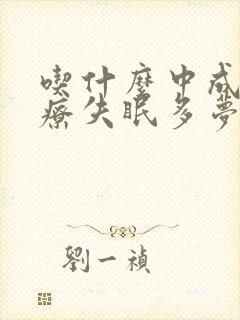 喫什麼中成
療失眠多夢
劉一禎